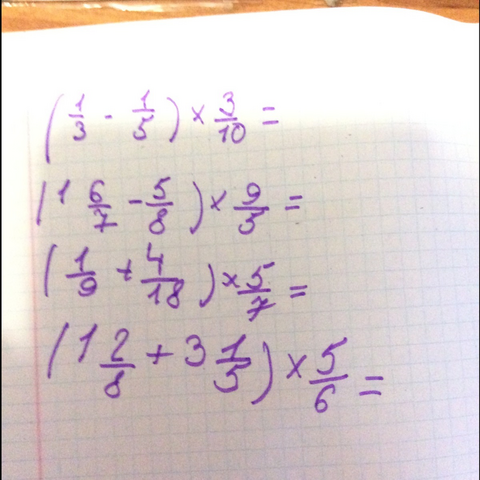 (1/3 - 1/5) × 3/10 =
(1 6/7 - 5/8) × 9/5 =
(1/9 + 4/18) × 5/7 =
(1 2/8 + 3 1/5) × 5/6 =